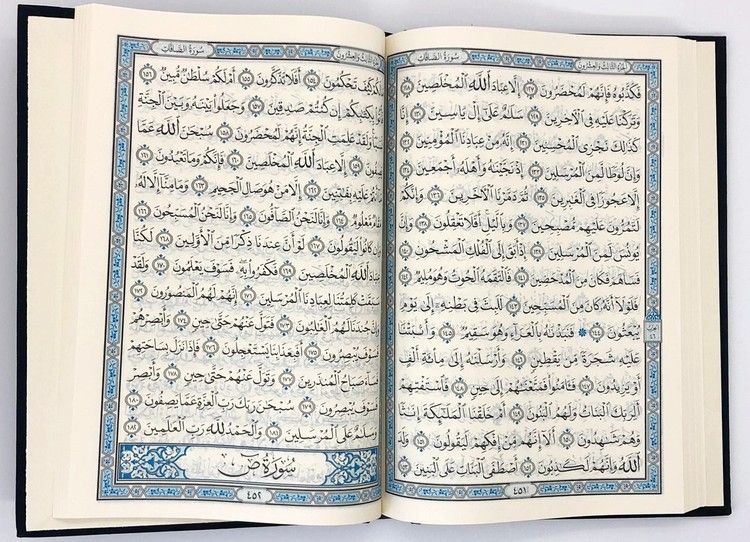 الجزء الثالث والعشرون
سورة الصافات
فَكَذَّبُوهُ فَإِنَّهُمْ لَمُحْضَرُونَ ١٢٧ إِلَّا عِبَادَ اللَّهِ الْمُخْلَصِينَ ١٢٨
وَتَرَكْنَا عَلَيْهِ فِي الْآخِرِينَ ١٢٩ سَلَٰمٌ عَلَىٰ إِلْ يَاسِينَ ١٣٠ إِنَّا
كَذَٰلِكَ نَجْزِي الْمُحْسِنِينَ ١٣١ إِنَّهُ مِنْ عِبَادِنَا الْمُؤْمِنِينَ ١٣٢
وَإِنَّ لُوطًا لَّمِنَ الْمُرْسَلِينَ ١٣٣ إِذْ نَجَّيْنَٰهُ وَأَهْلَهُ أَجْمَعِينَ ١٣٤
إِلَّا عَجُوزًا فِي الْغَٰبِرِينَ ١٣٥ ثُمَّ دَمَّرْنَا الْآخَرِينَ ١٣٦ وَإِنَّكُمْ
لَتَمُرُّونَ عَلَيْهِم مُّصْبِحِينَ ١٣٧ وَبِالَّيْلِ أَفَلَا تَعْقِلُونَ ١٣٨ وَإِنَّ
يُونُسَ لَمِنَ الْمُرْسَلِينَ ١٣٩ إِذْ أَبَقَ إِلَى الْفُلْكِ الْمَشْحُونِ ١٤٠
فَسَاهَمَ فَكَانَ مِنَ الْمُدْحَضِينَ ١٤١ فَالْتَقَمَهُ الْحُوتُ وَهُوَ مُلِيمٌ ١٤٢
فَلَوْلَا أَنَّهُ كَانَ مِنَ الْمُسَبِّحِينَ ١٤٣ لَلَبِثَ فِي بَطْنِهِ إِلَىٰ يَوْمِ
يُبْعَثُونَ ١٤٤ فَنَبَذْنَٰهُ بِالْعَرَاءِ وَهُوَ سَقِيمٌ ١٤٥ وَأَنبَتْنَا
عَلَيْهِ شَجَرَةً مِّن يَقْطِينٍ ١٤٦ وَأَرْسَلْنَٰهُ إِلَىٰ مِائَةِ أَلْفٍ
أَوْ يَزِيدُونَ ١٤٧ فَآمَنُوا فَمَتَّعْنَٰهُمْ إِلَىٰ حِينٍ ١٤٨ فَاسْتَفْتِهِمْ
أَلِرَبِّكَ الْبَنَاتُ وَلَهُمُ الْبَنُونَ ١٤٩ أَمْ خَلَقْنَا الْمَلَٰئِكَةَ إِنَٰثًا
وَهُمْ شَٰهِدُونَ ١٥٠ أَلَا إِنَّهُم مِّنْ إِفْكِهِمْ لَيَقُولُونَ ١٥١ وَلَدَ
اللَّهُ وَإِنَّهُمْ لَكَٰذِبُونَ ١٥٢ أَصْطَفَى الْبَنَاتِ عَلَى الْبَنِينَ ١٥٣
٤٥١
الجزء الثالث والعشرون
سورة الصافات
لَكُمْ كَيْفَ تَحْكُمُونَ ١٥٤ أَفَلَا تَذَكَّرُونَ ١٥٥ أَمْ لَكُمْ سُلْطَٰنٌ مُّبِينٌ ١٥٦
بِكِتَٰبِكُمْ إِن كُنتُمْ صَٰدِقِينَ ١٥٧ وَجَعَلُوا بَيْنَهُ وَبَيْنَ الْجِنَّةِ
وَلَقَدْ عَلِمَتِ الْجِنَّةُ إِنَّهُمْ لَمُحْضَرُونَ ١٥٨ سُبْحَٰنَ اللَّهِ عَمَّا
يَصِفُونَ ١٥٩ إِلَّا عِبَادَ اللَّهِ الْمُخْلَصِينَ ١٦٠ فَإِنَّكُمْ وَمَا تَعْبُدُونَ ١٦١
عَلَيْهِ بِفَٰتِنِينَ ١٦٢ إِلَّا مَنْ هُوَ صَالِ الْجَحِيمِ ١٦٣ وَمَا مِنَّا إِلَّا لَهُ
مَّعْلُومٌ ١٦٤ وَإِنَّا لَنَحْنُ الصَّافُّونَ ١٦٥ وَإِنَّا لَنَحْنُ الْمُسَبِّحُونَ ١٦٦
كَانُوا لَيَقُولُونَ ١٦٧ لَوْ أَنَّ عِندَنَا ذِكْرًا مِّنَ الْأَوَّلِينَ ١٦٨ لَكُنَّا
اللَّهِ الْمُخْلَصِينَ ١٦٩ فَكَفَرُوا بِهِ فَسَوْفَ يَعْلَمُونَ ١٧٠ وَلَقَدْ
سَبَقَتْ كَلِمَتُنَا لِعِبَادِنَا الْمُرْسَلِينَ ١٧١ إِنَّهُمْ لَهُمُ الْمَنصُورُونَ ١٧٢
جُندَنَا لَهُمُ الْغَٰلِبُونَ ١٧٣ فَتَوَلَّ عَنْهُمْ حَتَّىٰ حِينٍ ١٧٤ وَأَبْصِرْهُمْ
فَسَوْفَ يُبْصِرُونَ ١٧٥ أَفَبِعَذَابِنَا يَسْتَعْجِلُونَ ١٧٦ فَإِذَا نَزَلَ بِسَاحَتِهِمْ
فَسَاءَ صَبَاحُ الْمُنذَرِينَ ١٧٧ وَتَوَلَّ عَنْهُمْ حَتَّىٰ حِينٍ ١٧٨ وَأَبْصِرْ
فَسَوْفَ يُبْصِرُونَ ١٧٩ سُبْحَٰنَ رَبِّكَ رَبِّ الْعِزَّةِ عَمَّا يَصِفُونَ ١٨٠
وَسَلَٰمٌ عَلَى الْمُرْسَلِينَ ١٨١ وَالْحَمْدُ لِلَّهِ رَبِّ الْعَٰلَمِينَ ١٨٢
سُورَةُ ص
٤٥٢